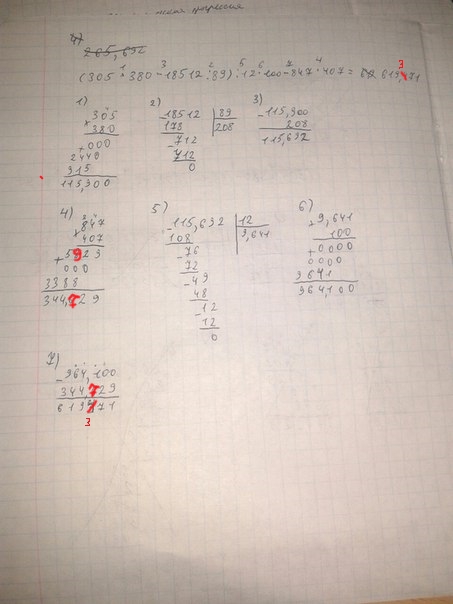 прогрессия
4)
265,632
(305 · 380 - 18512 : 89) : 12 · 100 - 847 · 407 = 619,371
1) 2) 3)
305 18512 | 89 115,900
× 380 178 | 208 208
000 712 115,692
2440 712
915 0
115,900
4) 5) 6)
847 115,692 | 12 9,641
× 407 108 | 9,641 100
5929 76 0000
000 72 0000
3388 49 9641
344,729 48 964,100
12
12
0
7)
964,100
344,729
619371
3